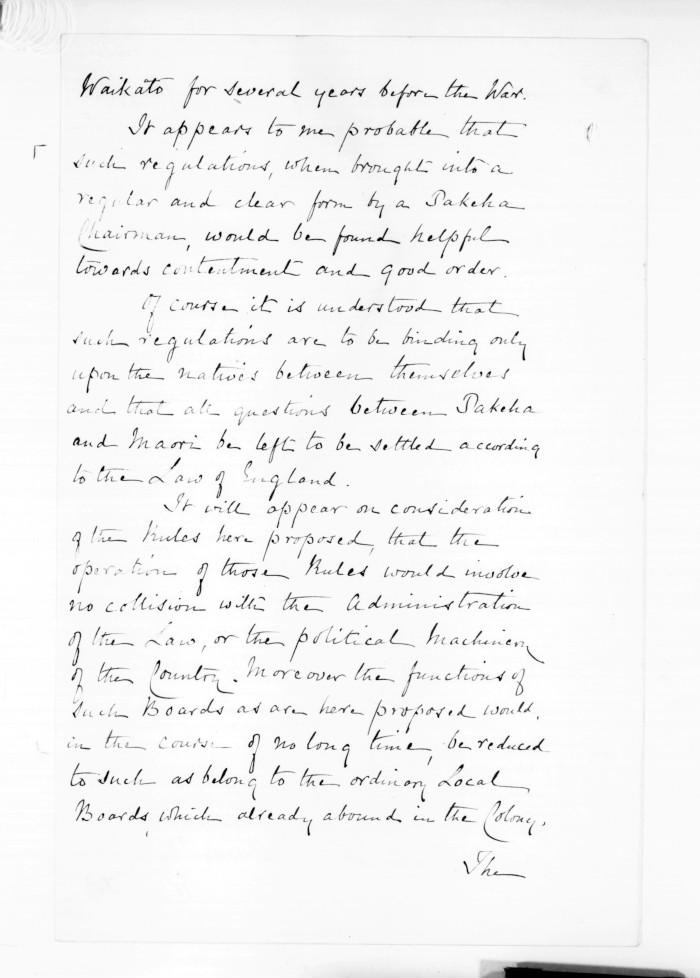 Waikato for several years before the War.
It appears to me probable that
such regulations, when brought into a
regular and clear form by a Pakeha
Chairman, would be found helpful
towards contentment and good order.
Of course it is understood that
such regulations are to be binding only
upon the natives between themselves
and that all questions between Pakeha
and Maori be left to be settled according
to the Law of England.
It will appear on consideration
of the Rules here proposed, that the
operation of those Rules would involve
no collision with the Administration
of the Law, or the political Machinery
of the Country. Moreover the functions of
such Boards as are here proposed would,
in the course of no long time, be reduced
to such as belong to the ordinary Local
Boards, which already abound in the Colony.
The